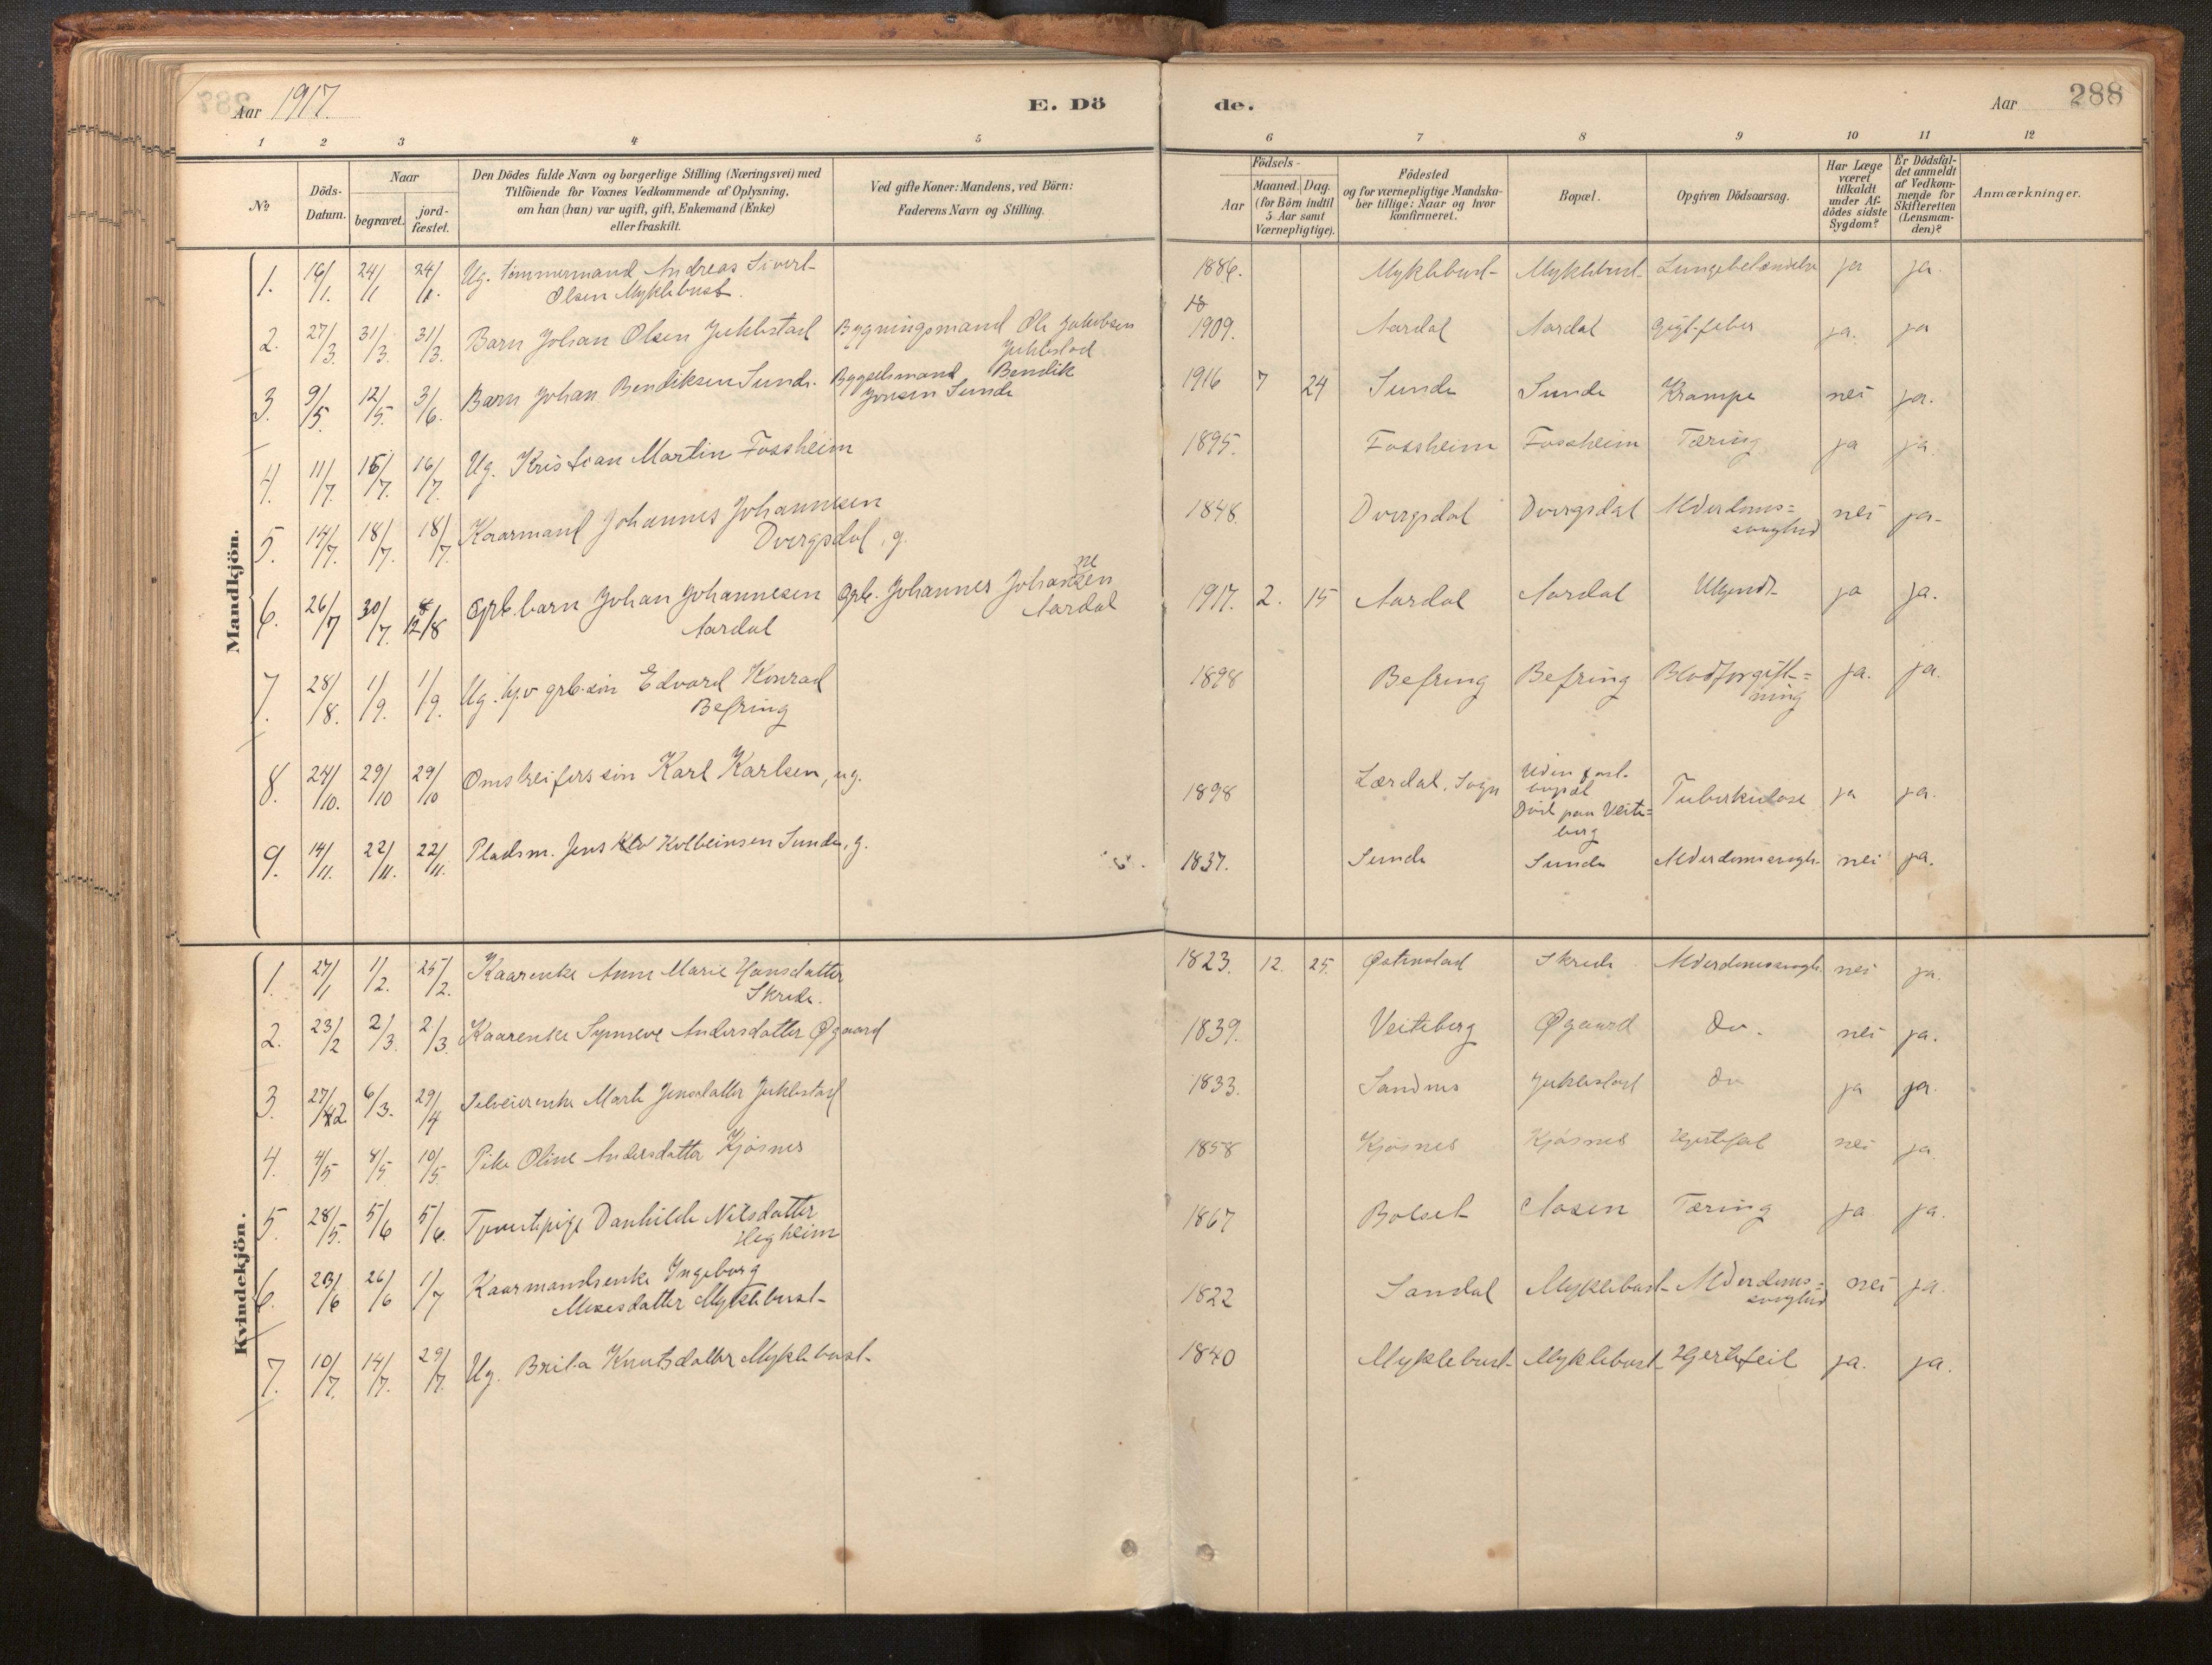 Aar 1917.
E. Dö
de.
Aar
288
1 2 3 4 5 6 7 8 9 10 11 12
No
Döds-
Datum.
Naar
begravet.
jord-
fæstet.
Den Dödes fulde Navn og borgerlige Stilling (Næringsvei) med
Tilföiende for Voxnes Vedkommende af Oplysning,
om han (hun) var ugift, gift, Enkemand (Enke)
eller fraskilt.
Ved gifte Koner: Mandens, ved Börn:
Faderens Navn og Stilling.
Födsels-
Aar
Maaned. Dag.
(for Börn indtil
5 Aar samt
Værnepligtige).
Födested
og for værnepligtige Mandska-
ber tillige: Naar og hvor
konfirmeret.
Bopæl.
Opgiven Dödsaarsag.
Har Læge
været
tilkaldt
under Af-
dödes sidste
Sygdom?
Er Dödsfal-
det anmeldt
af Vedkom-
mende for
Skifteretten
(Lensman-
den)?
Anmærkninger.
Mandkjön.
1. 16/1. 24/1 24/1. Ug. tømmermand Andreas Sivert- 1886. Myklebust- Myklebust- Lungebetændelse ja ja.
Olsen Myklebust.
18
2. 27/3. 31/3. 31/3. Barn Johan Olsen Juklestad Bygningsmand Ole Jakobsen 1909. Aardal Aardal Gigt-feber ja. ja
Juklestad
3. 9/5. 12/5. 3/6. Barn Johan Bendiksen Sunde. Bygselmand Bendik 1916 7 24 Sunde Sunde Krampe nei ja.
Jonsen Sunde
4. 11/7. 16/7. 16/7. Ug. Kristian Martin Fossheim 1895. Fossheim Fossheim Tæring ja ja.
5. 14/7. 18/7. 18/7. Kaarmand Johannes Johannesen 1848. Dvergsdal Dvergsdal Alderdoms= nei ja-
Dvergsdal, g. svaghed
6. 26/7 30/7. 12/8 Grb. barn Johan Johannesen Grb. Johannes Johannesen 1917. 2. 15 Aardal Aardal Ukjendt ja ja.
Aardal Aardal
7. 28/8. 1/9. 1/9. Ug. hjv grb. søn Edvard Konrad 1898 Befring Befring Blodforgift-= ja. ja.
Befring ning
8. 24/10. 29/10 29/10 Omstreifers søn Karl Karlsen, ug. 1898 Lærdal, Sogn Uden fast- Tuberkulose ja ja.
bopæl
Død paa Veite=
berg
9. 14/11. 22/11. 22/11. Pladsm. Jens Kolbeinsen Sunde, g. 1837. Sunde Sunde Alderdomssvagh. nei ja.
Kvindekjön.
1. 27/1 1/2. 25/2. Kaarenke Anne Marie Hansdatter 1823. 12. 25. Østenstad Skrede Alderdomssvagh. nei ja.
Skrede.
2. 23/2 2/3. 2/3. Kaarenke Synneve Andersdatter Øgaard 1839. Veiteberg Øgaard Do. nei ja.
3. 27/2 6/3. 29/4 Selveierenke Marte Jensdatter Juklestad 1833. Sandnes Juklestad Do ja ja.
4. 4/5 8/5 10/5. Pike Oline Andersdatter Kjøsnes 1858 Kjøsnes Kjøsnes Hjertefeil nei ja.
5. 28/5. 5/6 5/6. Tjenestpige Danhilde Nilsdatter 1867 Bolset Aasen Tæring ja ja.
Hegheim
6. 23/6 26/6 1/7 Kaarmandsenke Ingeborg 1822 Sandal Myklebust- Alderdoms= nei ja.
Mosesdatter Myklebust- svaghed
7. 10/7. 14/7. 29/7. Ug. Brita Knutsdatter Myklebust- 1840 Myklebust- Myklebust- Hjertefeil ja. ja.